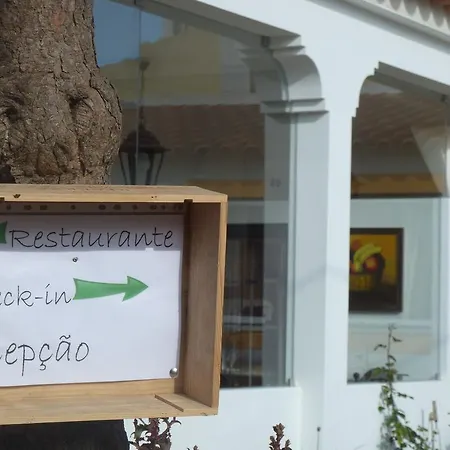 Restaurante
eck-in
epção